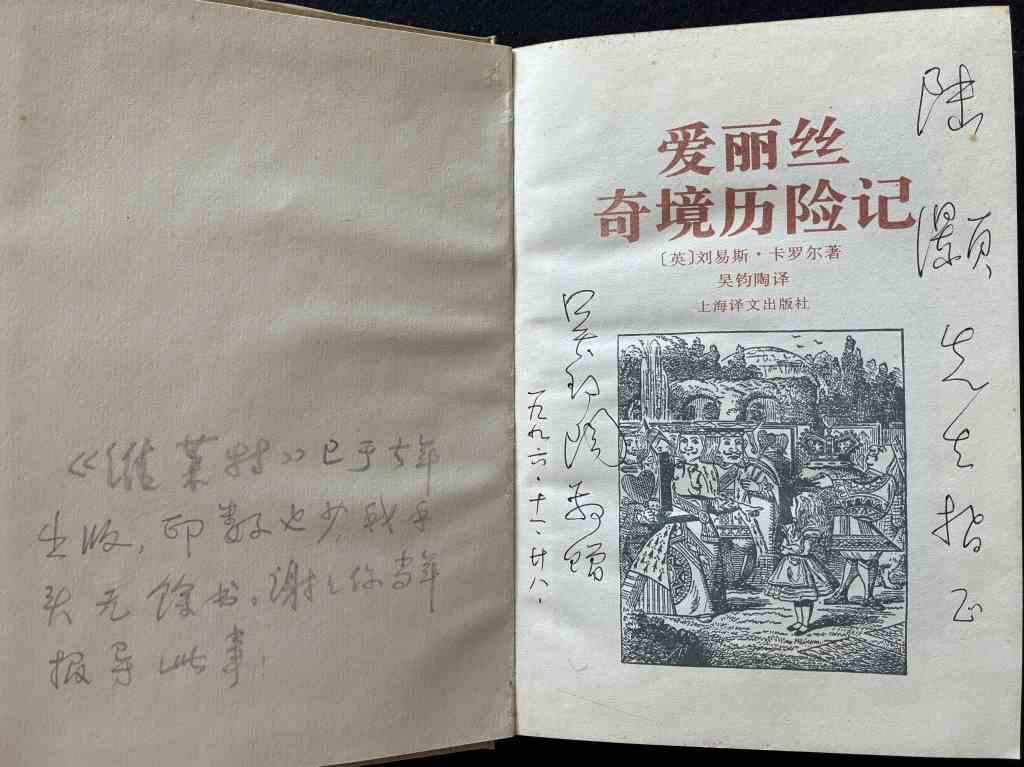 《维莱特》已于去年
出版,印数也少,我手
头无馀书。谢谢你当年
报导此事!
爱丽丝
奇境历险记
〔英〕刘易斯·卡罗尔著
吴钧陶译
上海译文出版社
陆灏先生指正
吴钧陶敬赠
一九九六.十一.廿八.